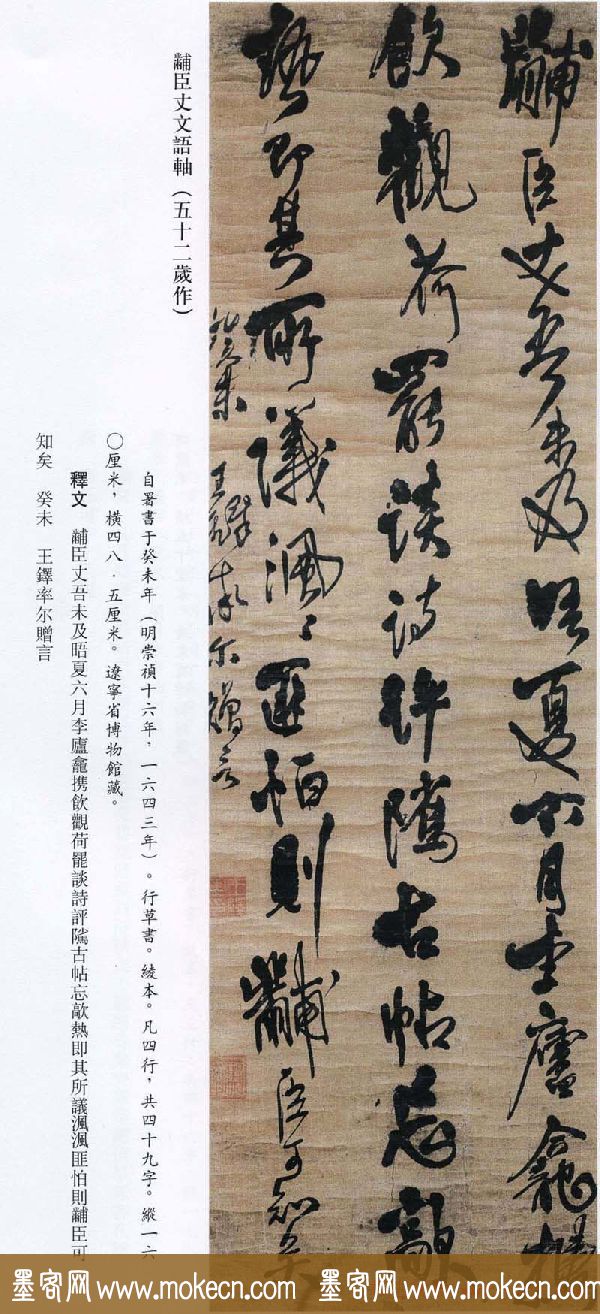 黼臣丈吾未及晤夏六月李廬龕攜
飲觀荷罷談詩評隲古帖忘歊
熱即其所議渢〻匪怕則黼臣可知矣
癸未 王鐸率尔贈言
黼臣丈文語軸（五十二歲作）
自署書于癸未年（明崇禎十六年，一六四三年）。行草書。綾本。凡四行，共四十九字。縱一六
〇厘米，橫四八·五厘米。遼寧省博物館藏。
釋文 黼臣丈吾未及晤夏六月李廬龕携飲觀荷罷談詩評隲古帖忘歊熱即其所議渢渢匪怕則黼臣可
知矣 癸未 王鐸率尔贈言
墨客网 www.mokecn.com 墨客网 www.mokecn.com